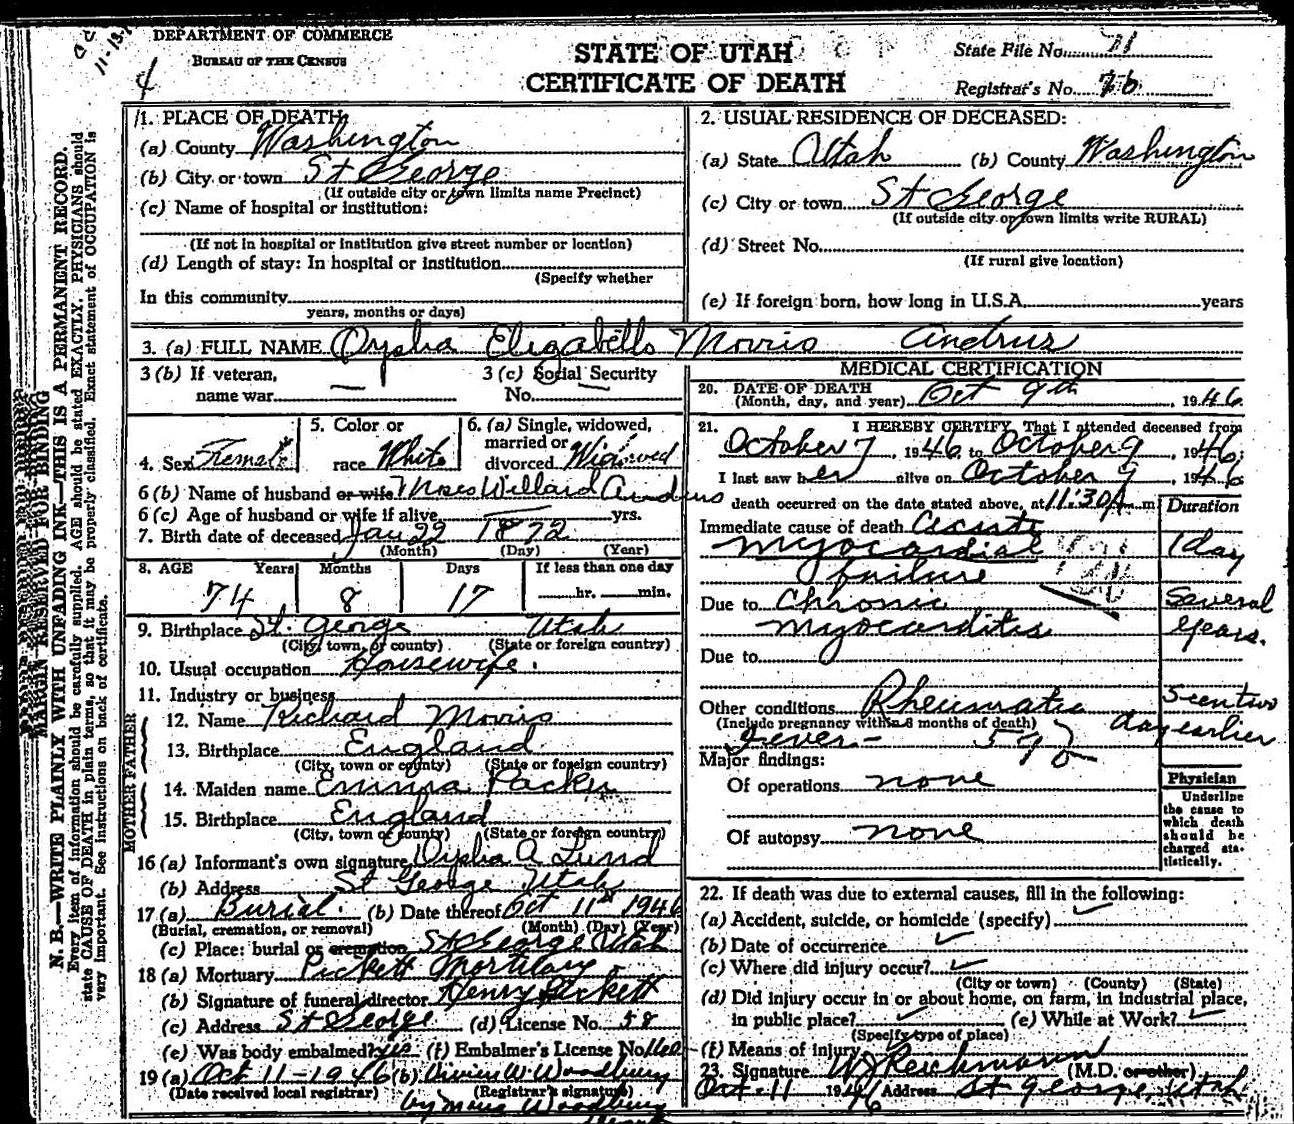 DEPARTMENT OF COMMERCE
BUREAU OF THE CENSUS
STATE OF UTAH
CERTIFICATE OF DEATH
State File No. 71
Registrar's No. 76
4
11-13
N. B.—WRITE PLAINLY WITH UNFADING INK—THIS IS A PERMANENT RECORD.
Every item of information should be carefully supplied. AGE should be stated EXACTLY. PHYSICIANS should
state CAUSE OF DEATH in plain terms, so that it may be properly classified. Exact statement of OCCUPATION is
very important. See instructions on back of certificate.
MARGIN RESERVED FOR BINDING
1. PLACE OF DEATH:
(a) County Washington
(b) City or town St George
(If outside city or town limits name Precinct)
(c) Name of hospital or institution:
(If not in hospital or institution give street number or location)
(d) Length of stay: In hospital or institution
(Specify whether
In this community
years, months or days)
2. USUAL RESIDENCE OF DECEASED:
(a) State Utah (b) County Washington
(c) City or town St George
(If outside city or town limits write RURAL)
(d) Street No.
(If rural give location)
(e) If foreign born, how long in U.S.A. years
3. (a) FULL NAME Orpha Elizabeth Morris Andrus
3 (b) If veteran, name war —
3 (c) Social Security No. —
4. Sex Female
5. Color or race White
6. (a) Single, widowed, married or divorced Widowed
6 (b) Name of husband or wife Moses Willard Andrus
6 (c) Age of husband or wife if alive — yrs.
7. Birth date of deceased Jan 22 1872
(Month) (Day) (Year)
8. AGE Years Months Days If less than one day
74 8 17 hr. min.
9. Birthplace St. George Utah
(City, town, or county) (State or foreign country)
10. Usual occupation Housewife.
11. Industry or business
FATHER
12. Name Richard Morris
13. Birthplace England
(City, town or county) (State or foreign country)
MOTHER
14. Maiden name Emma Packer
15. Birthplace England
(City, town or county) (State or foreign country)
16 (a) Informant's own signature Orpha A Lund
(b) Address St George Utah
17 (a) Burial. (b) Date thereof Oct 11th 1946
(Burial, cremation, or removal) (Month) (Day) (Year)
(c) Place: burial or cremation St George Utah
18 (a) Mortuary Pickett Mortuary
(b) Signature of funeral director Henry Pickett
(c) Address St George (d) License No. 58
(e) Was body embalmed? yes (f) Embalmer's License No.
19 (a) Oct 11-1946 (b) Vivian W. Woodbury
(Date received local registrar) (Registrar's signature)
by Woodbury
MEDICAL CERTIFICATION
20. DATE OF DEATH
(Month, day, and year) Oct 9th, 1946
21. I HEREBY CERTIFY, That I attended deceased from
October 7, 1946 to October 9, 1946;
I last saw her alive on October 9, 1946
death occurred on the date stated above, at 11:30A m.
Duration
Immediate cause of death Acute
myocardial 1 day
failure
Due to Chronic Several
myocarditis years.
Due to
Other conditions Rheumatic Seen two
(Include pregnancy within 3 months of death) day earlier
Fever-
Major findings:
Of operations none
Of autopsy none
Physician
Underline the cause to which death should be charged statistically.
22. If death was due to external causes, fill in the following:
(a) Accident, suicide, or homicide (specify) ✓
(b) Date of occurrence ✓
(c) Where did injury occur? ✓
(City or town) (County) (State)
(d) Did injury occur in or about home, on farm, in industrial place,
in public place? ✓ (e) While at Work? ✓
(Specify type of place)
(f) Means of injury
23. Signature W J Reichmann (M.D. or other)
Oct-11 1946 Address St George, Utah